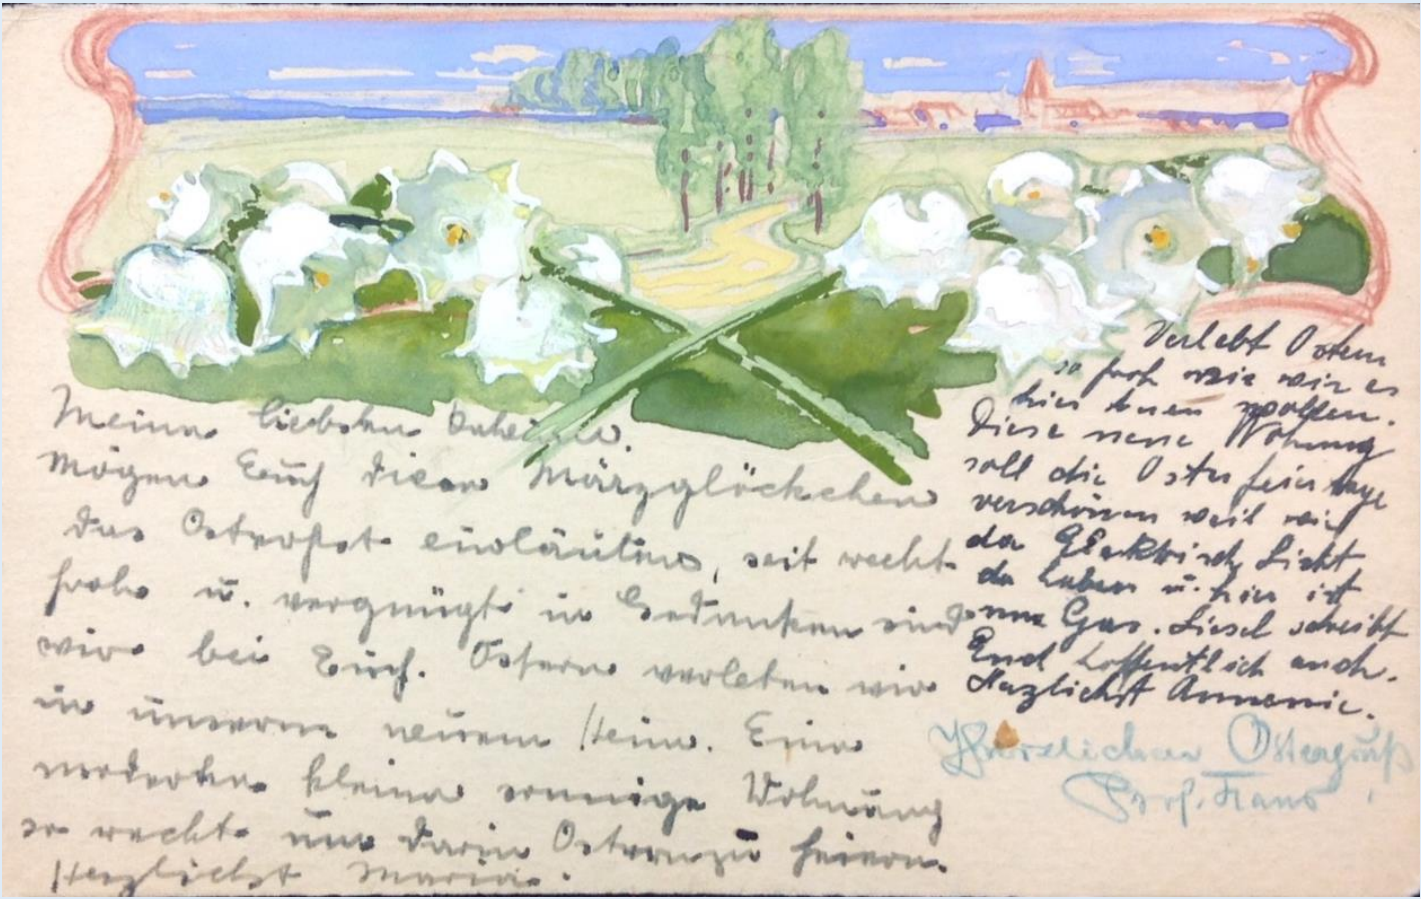 Meine liebsten Daheim.
Mögen Euch diese Märzglöckchen
das Osterfest einläuten, seit recht
froh u. vergnügt in Gedanken sind
wir bei Euch. Ostern verleben wir
in unserm neuem Heim. Eine
moderne kleine sonnige Wohnung
so recht um darin Ostern zu feiern.
Herzlichst Maria.
Verlebt Ostern
so froh wie wir es
hier tuen wollen.
Diese neue Wohnung
soll die Osterfeiertage
verschönen weil wir
da Elektrisch Licht
da haben u. hier ist
nur Gas. Liesel schreibt
Euch hoffentlich auch.
Herzlichst Annemie.
Herzlichen Ostergruß
Prof. Franz